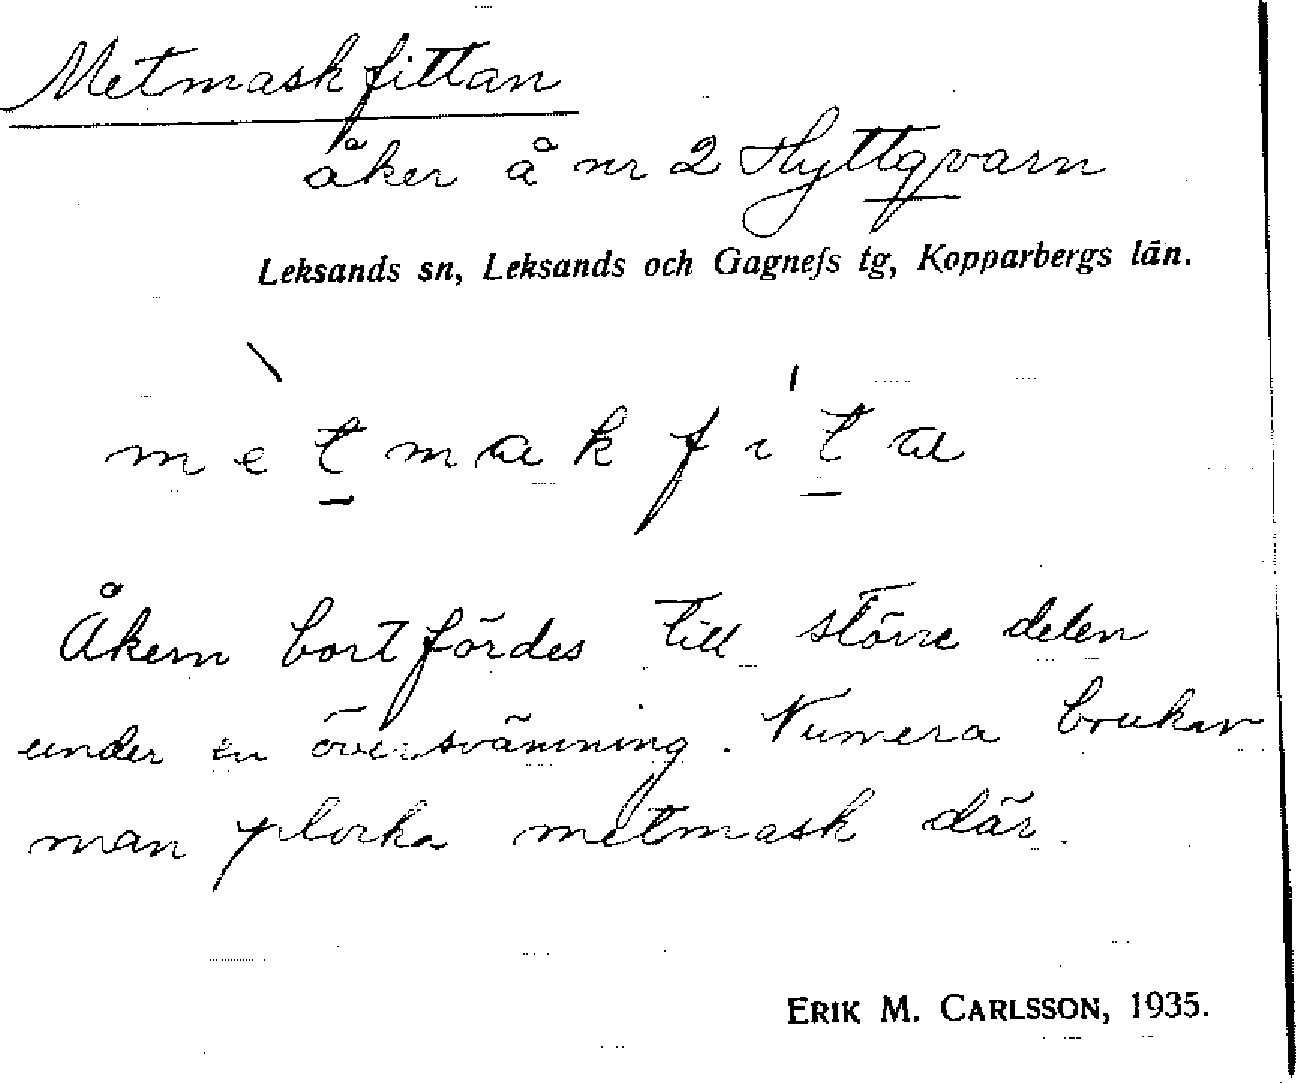 Metmaskfittan
åker å nr 2 Hyttqvarn
Leksands sn, Leksands och Gagnefs tg, Kopparbergs län.
mètmakfíta
Åkern bortfördes till större delen
under en översvämning. Numera brukar
man plocka metmask där.
ERIK M. CARLSSON, 1935.